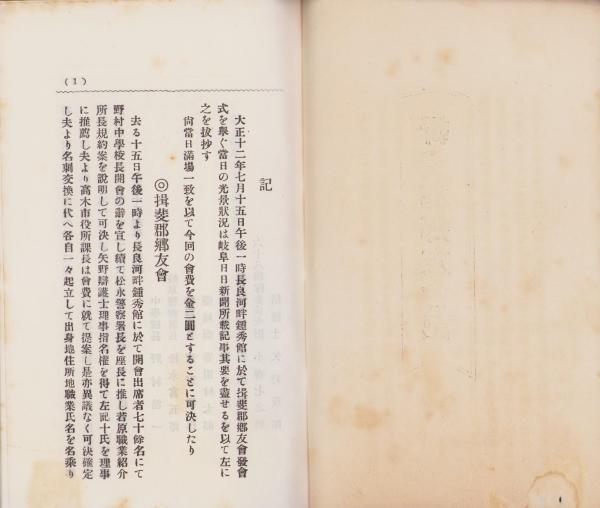 (1)
記
大正十二年七月十五日午後一時長良河畔鍾秀館に於て揖斐郡郷友會發會
式を擧ぐ當日の光景狀況は岐阜日日新聞所載記事其要を盡せるを以て左に
之を拔抄す
尙當日滿場一致を以て今回の會費を金二圓とすることに可決したり
◎揖斐郡鄕友會
去る十五日午後一時より長良河畔鍾秀館に於て開會出席者七十餘名にて
野村中學校長開會の辭を宣し續て松永警察署長を座長に推し若原職業紹介
所長規約案を說明して可決し矢野辯護士理事指名權を得て左記十氏を理事
に推薦し夫より高木市役所課長は會費に就て提案し是亦異議なく可決確定
し夫より名刺交換に代へ各自一々起立して出身地住所地職業氏名を名乘り